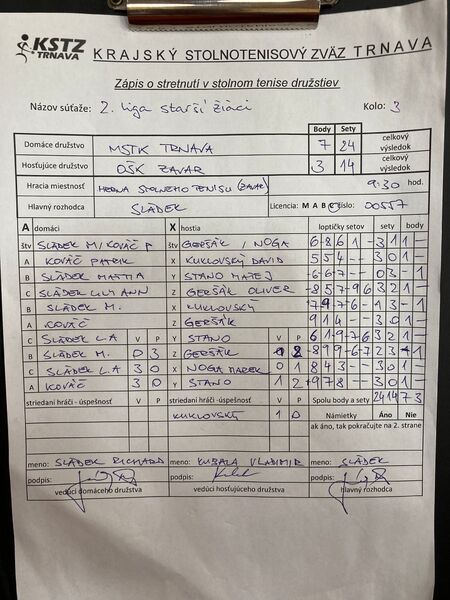 KSTZ
TRNAVA
KRAJSKÝ STOLNOTENISOVÝ ZVÄZ TRNAVA
Zápis o stretnutí v stolnom tenise družstiev
Názov súťaže: 2. liga starší žiaci Kolo: 3
Body Sety celkový výsledok
Domáce družstvo MSTK TRNAVA 7 24
Hosťujúce družstvo OŠK ZAVAR 3 14 celkový výsledok
Hracia miestnosť HERŇA STOLNÉHO TENISU (ZAVAR) 9:30 hod.
Hlavný rozhodca SLÁDEK Licencia: M A B C číslo: 00557
A domáci X hostia loptičky setov sety body
štv SLÁDEK M/KOVÁČ P štv GERŠÁK / NOGA 6 -8 6 1 - 3 1 1 -
A KOVÁČ PATRIK X KUKLOVSKÝ DAVID 5 5 4 - - 3 0 1 -
B SLÁDEK MATTIA Y STANO MATEJ -6 -6 -7 - - 0 3 - 1
C SLÁDEK LILY ANN Z GERŠÁK OLIVER -8 5 7 -9 6 3 2 1 -
B SLÁDEK M. X KUKLOVSKÝ
A KOVÁČ Z GERŠÁK 9 1 4 - - 3 0 1 -
C SLÁDEK L.A V P Y STANO V P 6 1 -9 7 -6 3 2 1 -
B SLÁDEK M. 0 3 Z GERŠÁK
C SLÁDEK L.A 3 0 X NOGA MAREK 0 1 8 4 3 - - 3 0 1 -
A KOVÁČ 3 0 Y STANO 1 2 9 7 8 - - 3 0 1 -
striedaní hráči - úspešnosť V P striedaní hráči - úspešnosť V P Spolu body a sety 24 14 7 3
KUKLOVSKÝ 1 0 Námietky Áno Nie
ak áno, tak pokračujte na 2. strane
meno: SLÁDEK RICHARD meno: KUBALA VLADIMIR meno: SLÁDEK
podpis: podpis: podpis:
vedúci domáceho družstva vedúci hosťujúceho družstva hlavný rozhodca